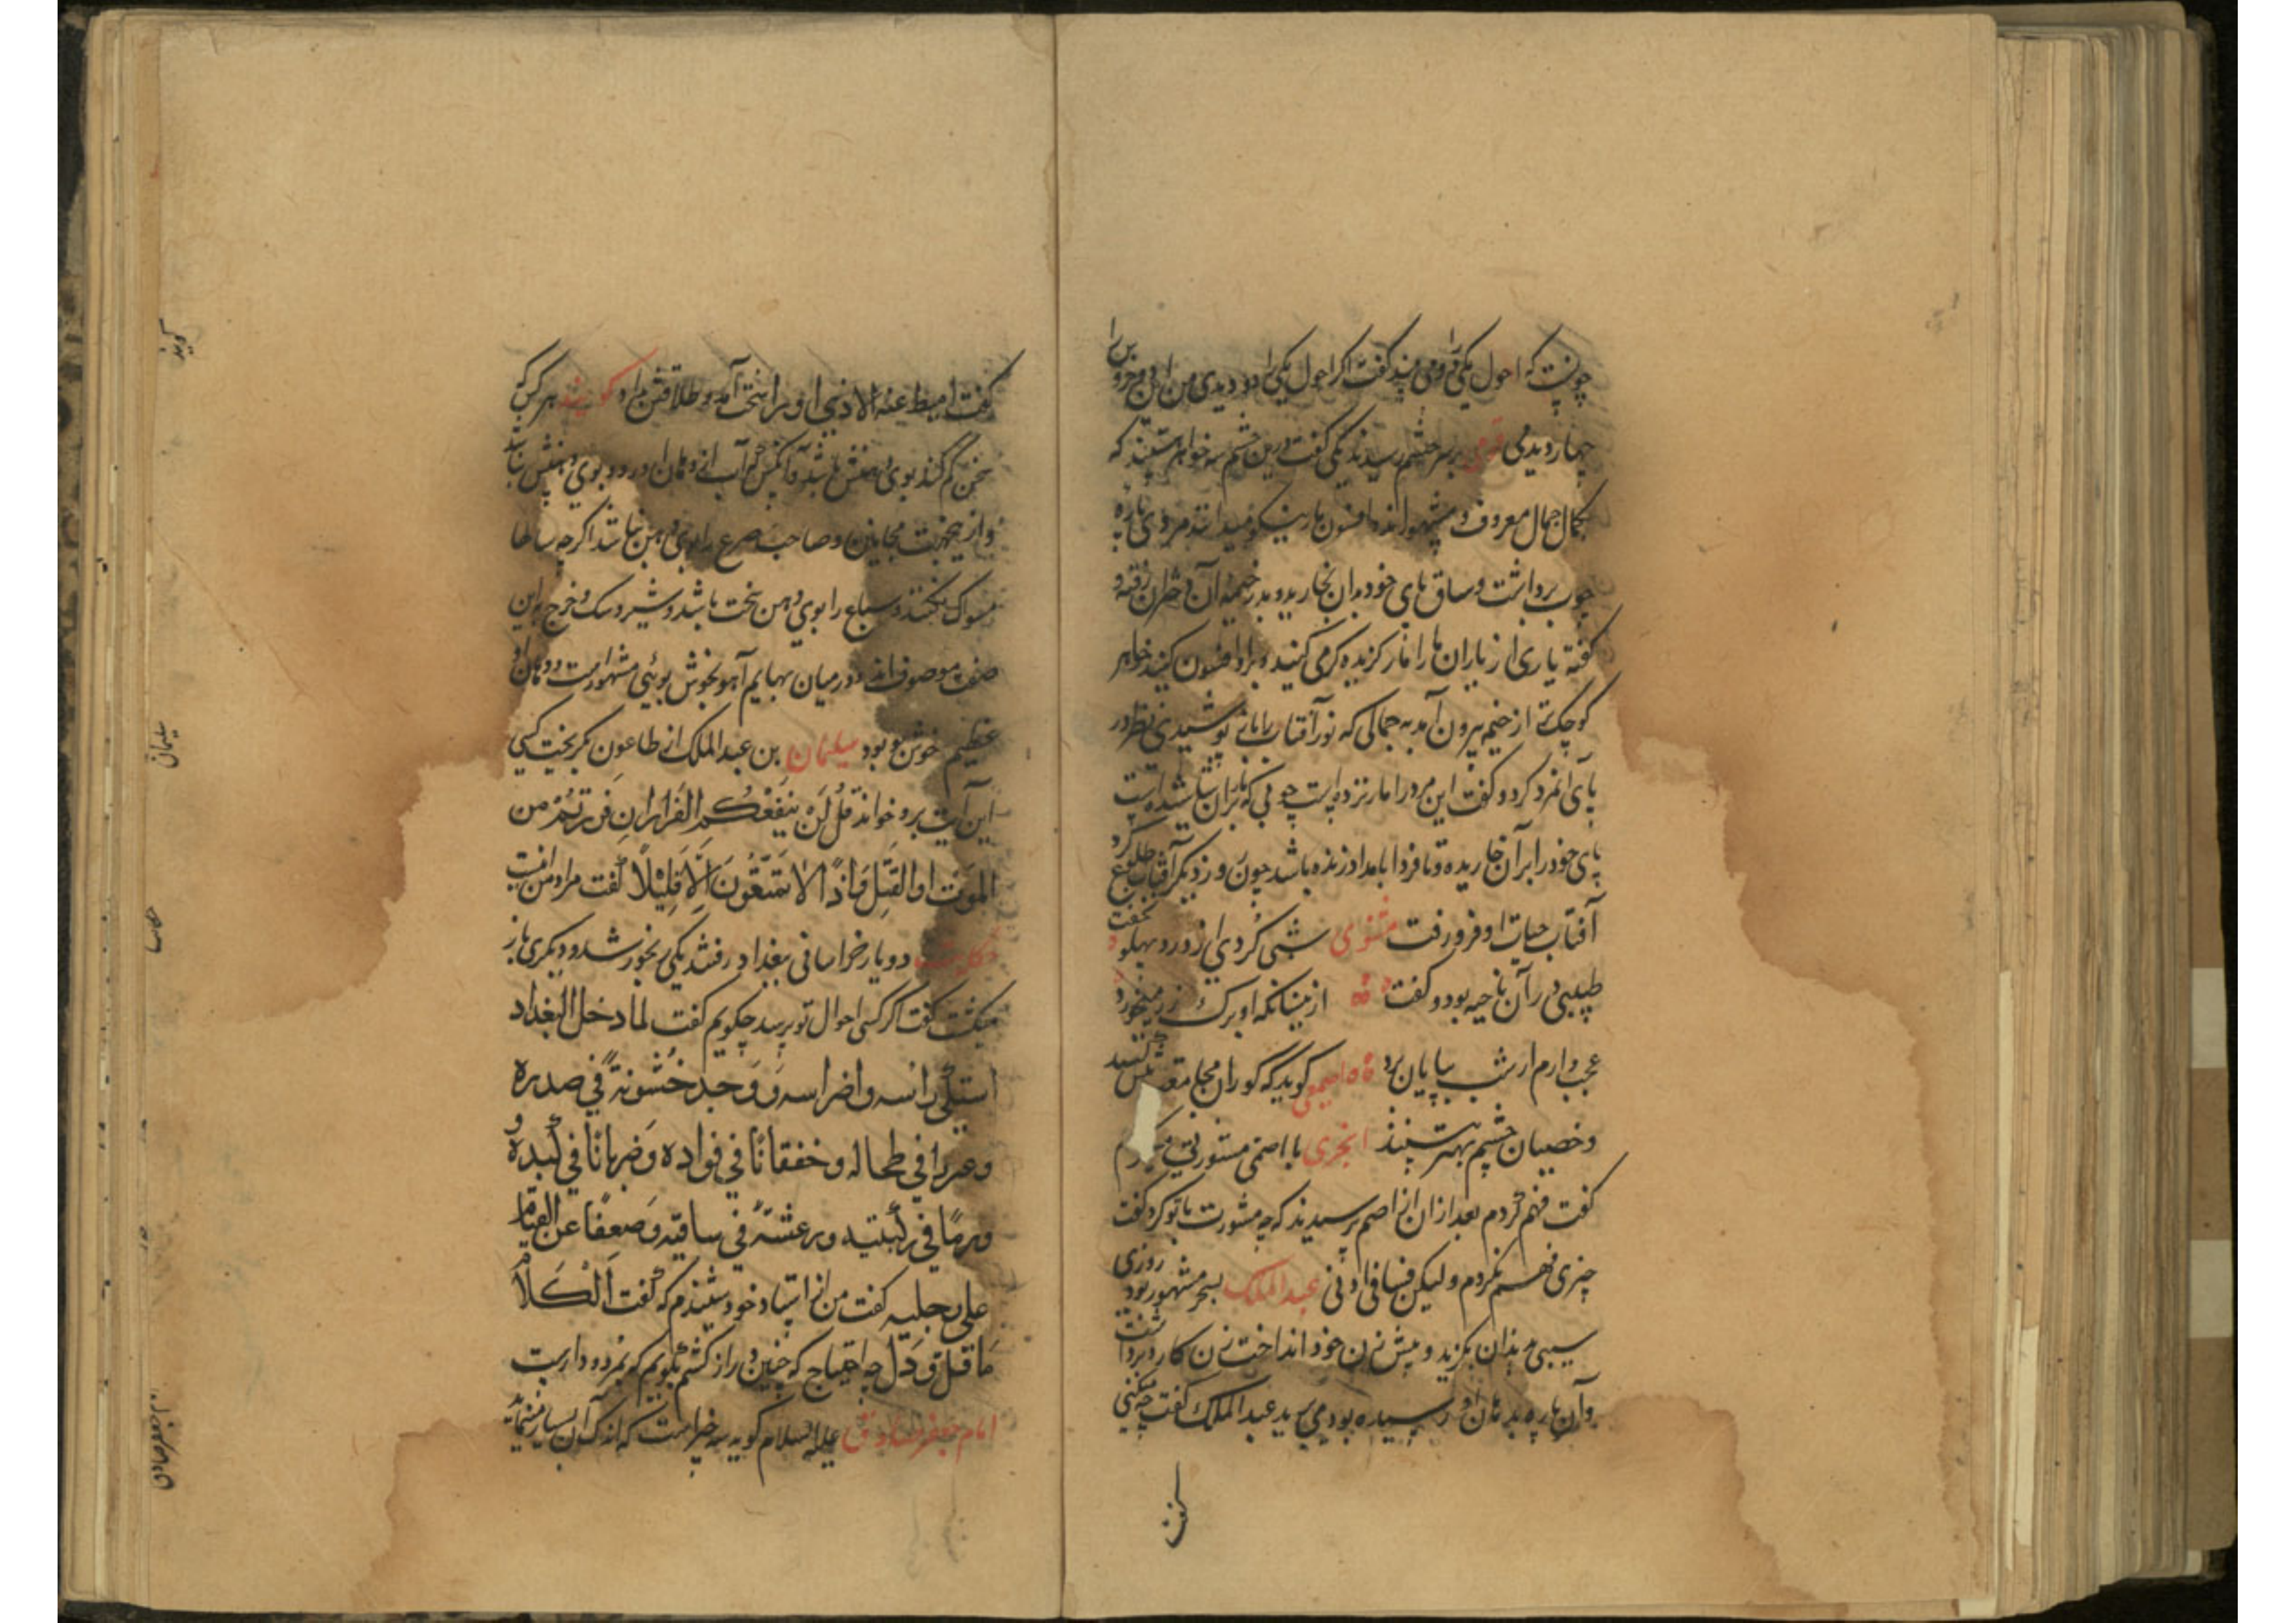 چونست که احول یکی را دو می بیند گفت اگر احول یکی را دو دیدی من این دو خروس را
چهار دیدمی قومی بر سر چشمه رسیدند یکی گفت درین چشمه سه خواهر هستند که
بکمال جمال معروف و مشهورند و افسون مار نیکو میدانند مردی پاره
چوب برداشت و ساق پای خود بدان بخارید و بدر خیمه آن دختران رفته و
گفته یاری از یاران ما را مار گزیده کرمی کنید و برو افسون کنید خواهر
کوچکی از خیمه بیرون آمد به جمالی که نور آفتاب را مانع پوشیدی نظر در
پای آنمرد کرد و گفت این مرد را مار نزده است چوبی که مار بران شاشیده است
پای خود را بر آن خاریده و تا فردا بامداد زنده باشد چون روز دیگر آفتاب طلوع کرد
آفتاب حیات او فرو رفت مثنوی شبی کردی از درد پهلو نخفت
طبیبی در آن ناحیه بود و گفت ازینسانکه او برگ رز میخورد
عجب دارم ار شب بپایان برد اصمعی گوید که کوران مجامعت بیش کنند
و خصیان چشم بهتر بینند ابخری با اصمی مشورتی میکرد
گفت فهم کردم بعد ازان از اصم پرسیدند که چه مشورت با تو کرد گفت
چیزی فهم نکردم و لیکن فسا فی اذنی عبدالملک ببخر مشهور بود روزی
سیبی بدندان بگزید و پیش زن خود انداخت زن کارد برداشت
و آن پاره بدهان او رسیده بود می برید عبدالملک گفت چه میکنی
گفت
گفت امیط عنه الاذی او را سخت آمد و طلاقش داد گویند هر کس که
سخن کم کند بوی دهنش باشد و آنکس که آب از دهان او رود بوی دهنش نباشد
و ازیجهت مجانین و صاحب صرع را بوی دهن نباشد اگرچه سالها
مسواک نکنند و سباع را بوی دهن سخت باشد و شیر و سگ و خرچ باین
صفت موصوف اند و در میان بهایم آهو بخوش بویی مشهور است و دهان او
عظیم خوش بو بود سلیمان بن عبدالملک از طاعون گریخت کسی
این آیت برو خواند قُل لَن یَنفَعَکُم الفَرارُ ان فَرَرتُم من
المَوت او القَتل وَاذًا لا تمتَّعُونَ الّا قَلیلاً گفت مراد من اینست
حکایت دو یار خراسانی ببغداد رفتند یکی رنجور شد و دیگری باز
میگشت گفت اگر کسی احوال تو پرسد چگویم گفت لما دخل البغداد
اشتکی راسه و اضراسه وَوَجد خُشونةً فی صدره
و عربا فی طحاله و خفقاناً فی فواده وَضرباناً فی کبده و
ورمًا فی رکبتیه و رعشةً فی ساقیه وَضعفًا عن القیام
علی رجلیه گفت من از استاد خود شنیدم که گفت اَلکَلامُ
مَا قلَّ وَ دَلَّ چه احتیاج که چنین دراز کشم بگویم که بمرد و وارست
امام جعفر صادق علیه السلام گوید سه چیز است که اندک آن بسیار مینماید
گویند
سلیمان
حکایت